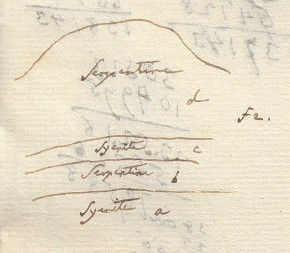 Serpentine
d
F2.
Syenite c
Serpentine b
Syenite a